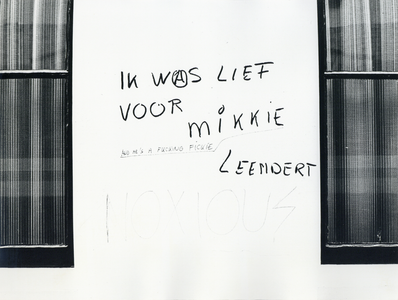 IK WAS LIEF
VOOR
MIKKIE
NO HE'S A FUCKING PICKIE
LEENDERT
NOXIOUS